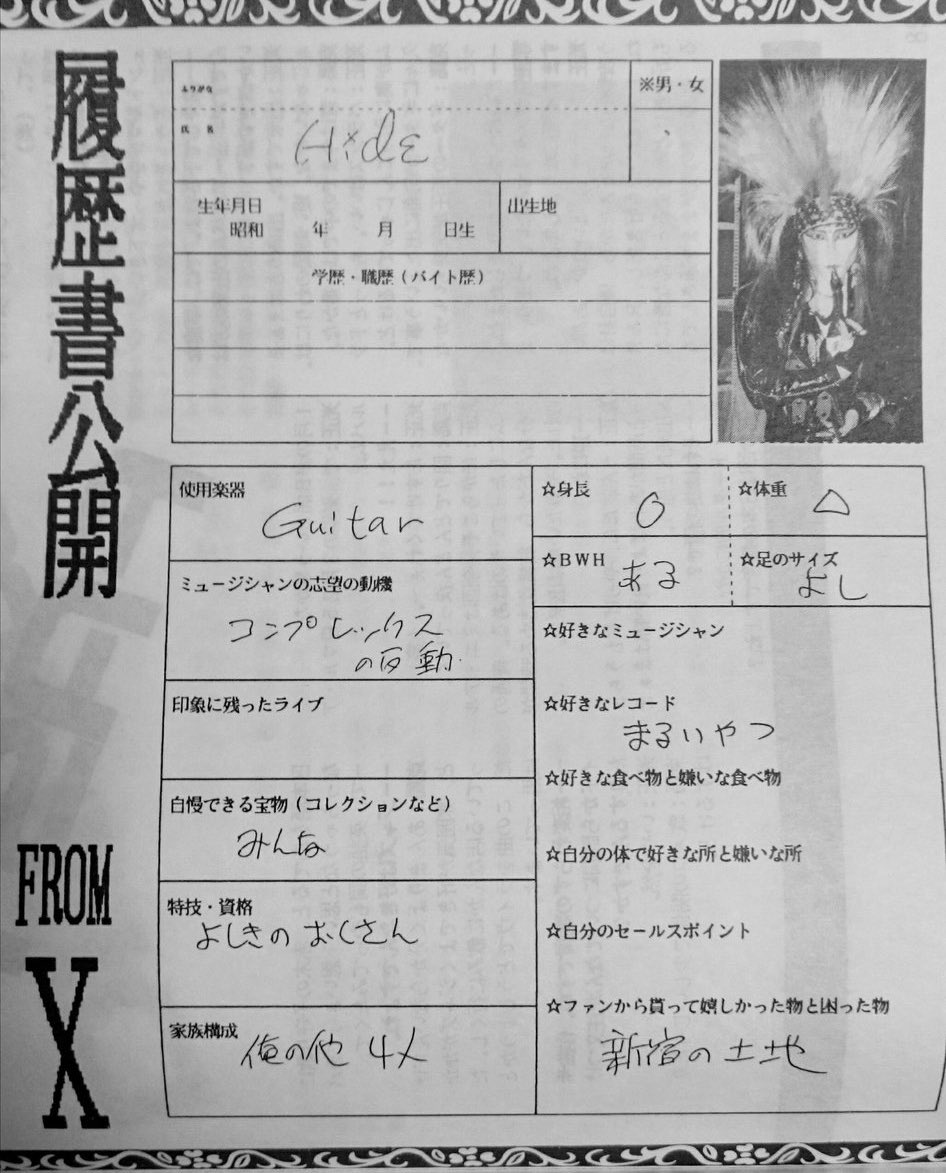 履歴書公開
FROM
X
ふりがな
※男・女
氏 名
Hide
生年月日
昭和 年 月 日生
出生地
学歴・職歴（バイト歴）
使用楽器
Guitar
ミュージシャンの志望の動機
コンプレックス
の反動.
印象に残ったライブ
自慢できる宝物（コレクションなど）
みんな
特技・資格
よしきの おくさん
家族構成
俺の他 4人
☆身長
○
☆体重
△
☆BWH
ある
☆足のサイズ
よし
☆好きなミュージシャン
☆好きなレコード
まるいやつ
☆好きな食べ物と嫌いな食べ物
☆自分の体で好きな所と嫌いな所
☆自分のセールスポイント
☆ファンから貰って嬉しかった物と困った物
新宿の土地